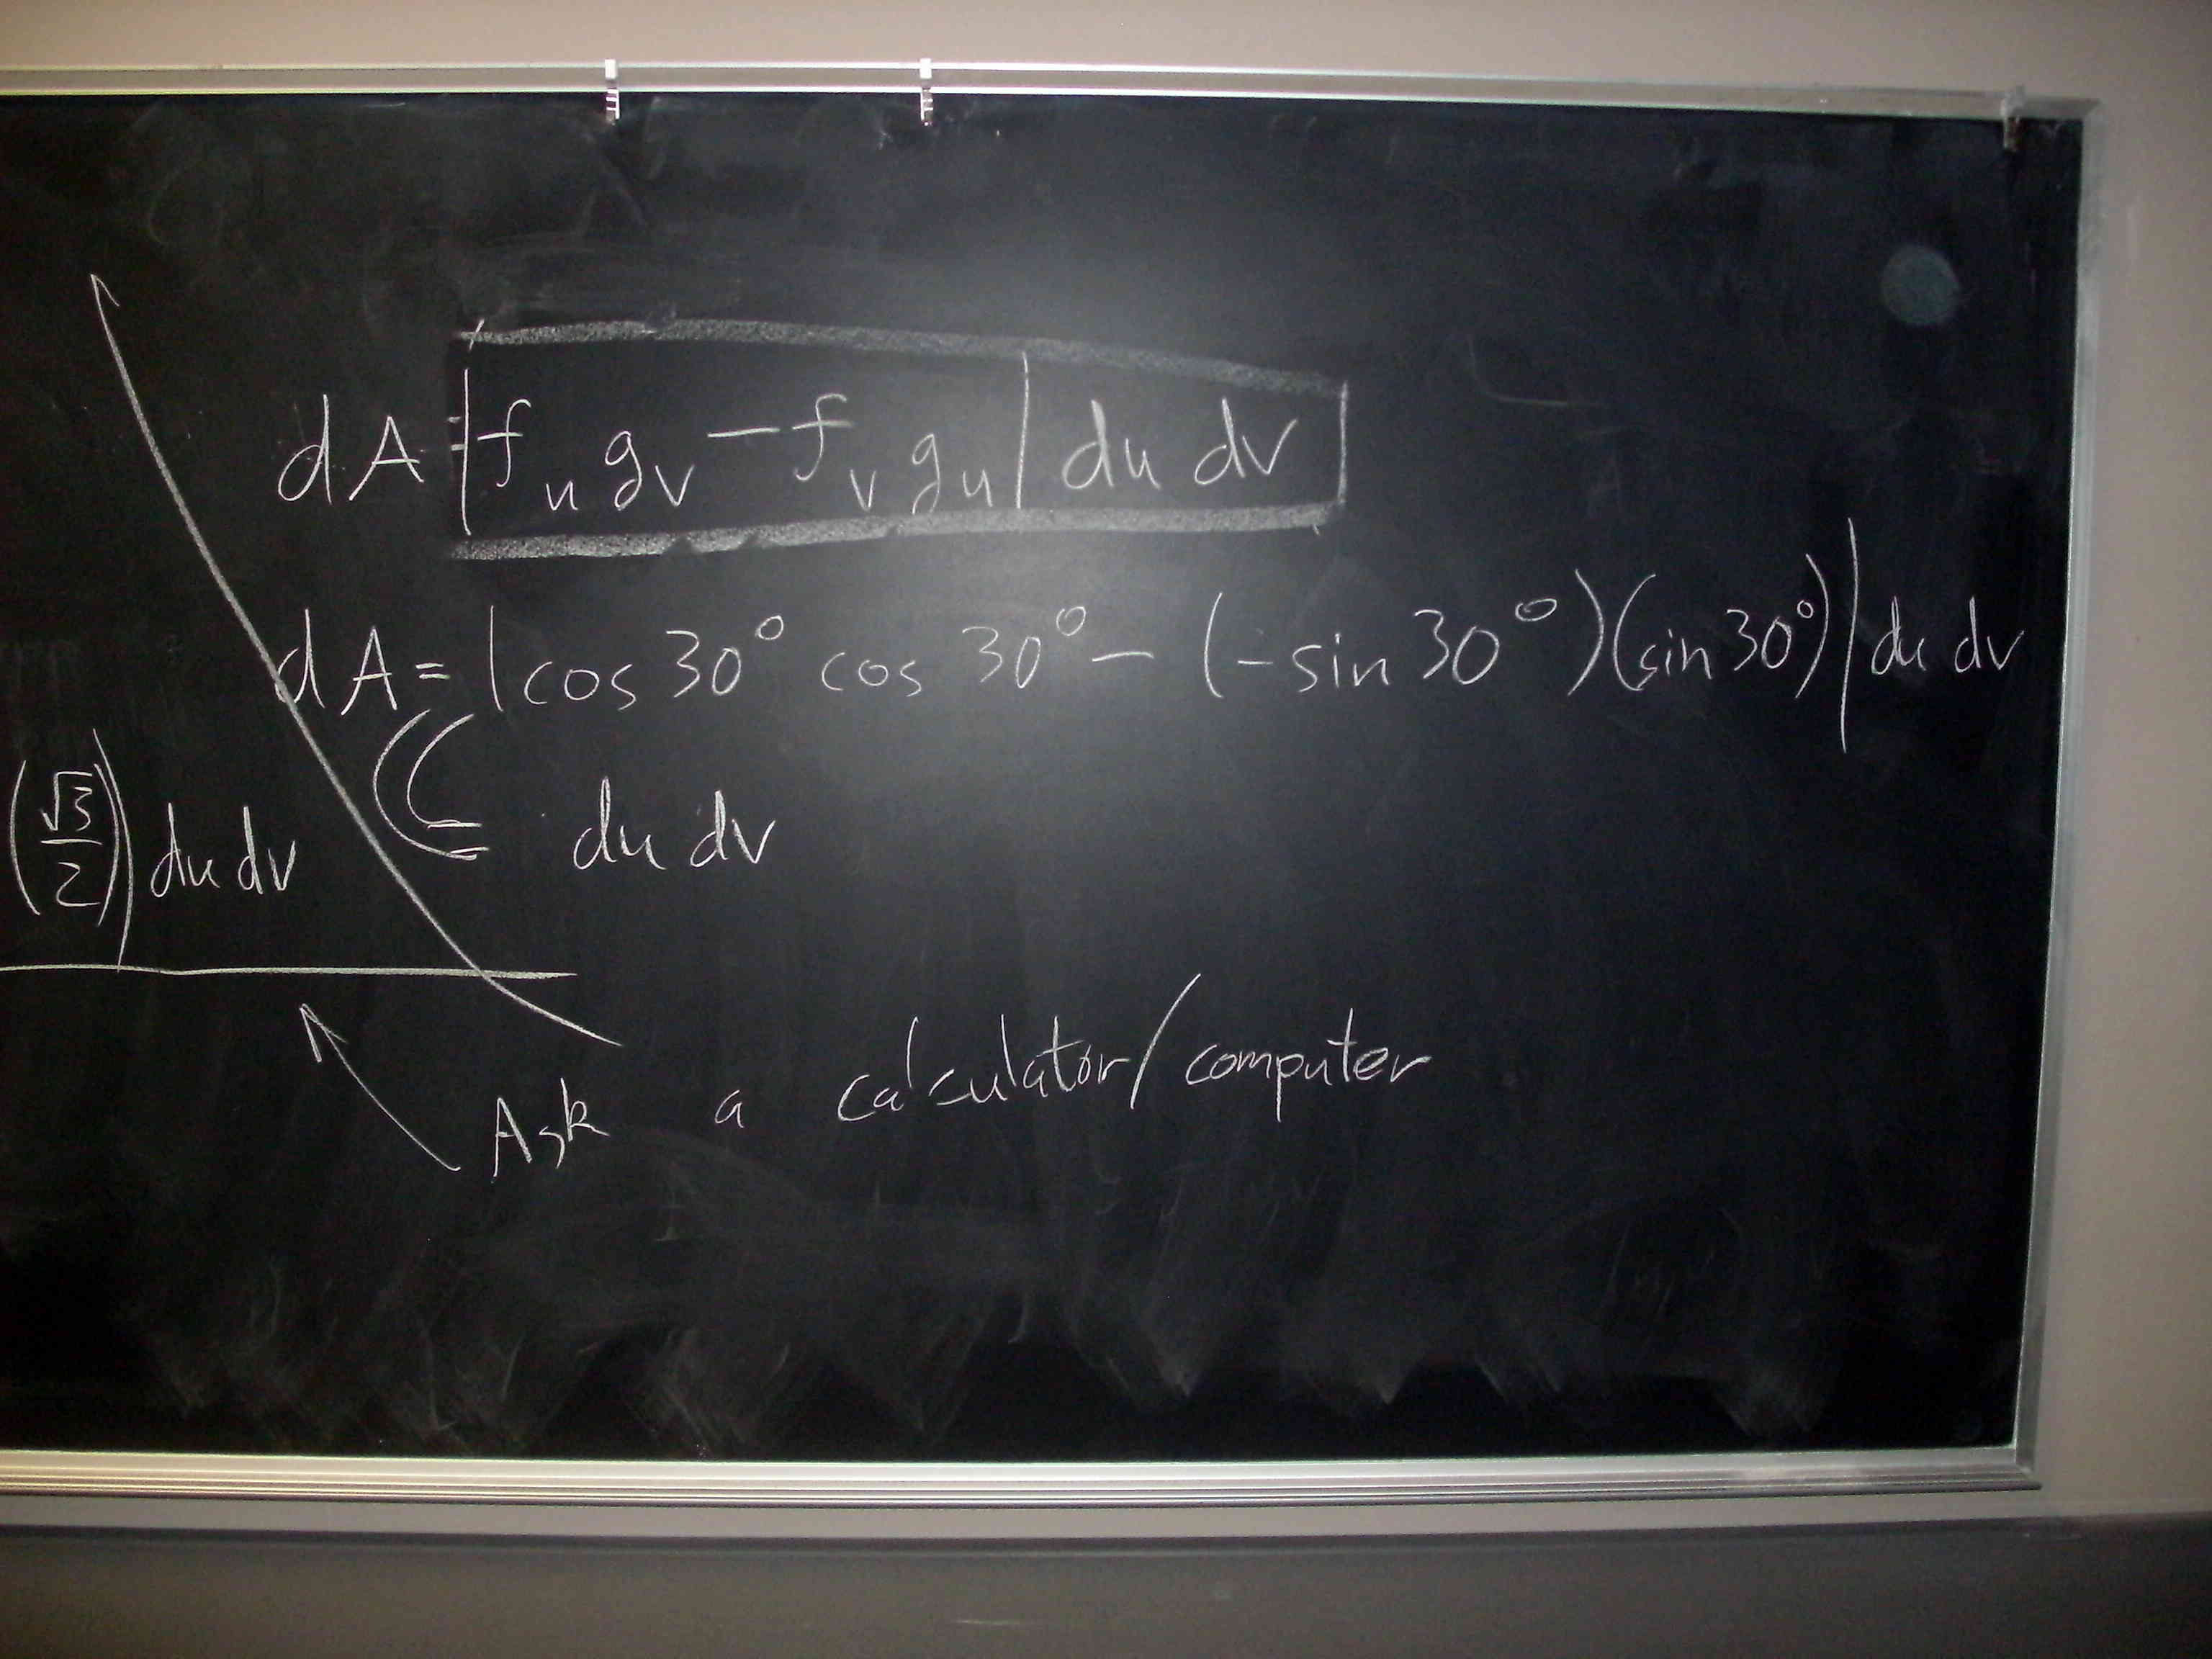 dA = |f_u g_v − f_v g_u| du dv
dA = |cos 30° cos 30° − (−sin 30°)(sin 30°)| du dv
= du dv
(√3/2)| du dv
Ask a calculator/computer